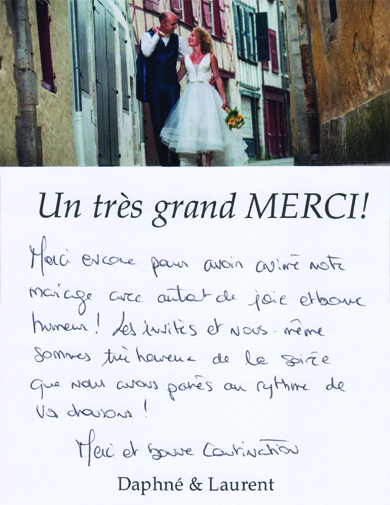 Un très grand MERCI!
Merci encore pour avoir animé notre
mariage avec autant de joie et bonne
humeur ! Les invités et nous-même
sommes très heureux de la soirée
que nous avons passés au rythme de
vos chansons !
Merci et bonne continuation
Daphné & Laurent